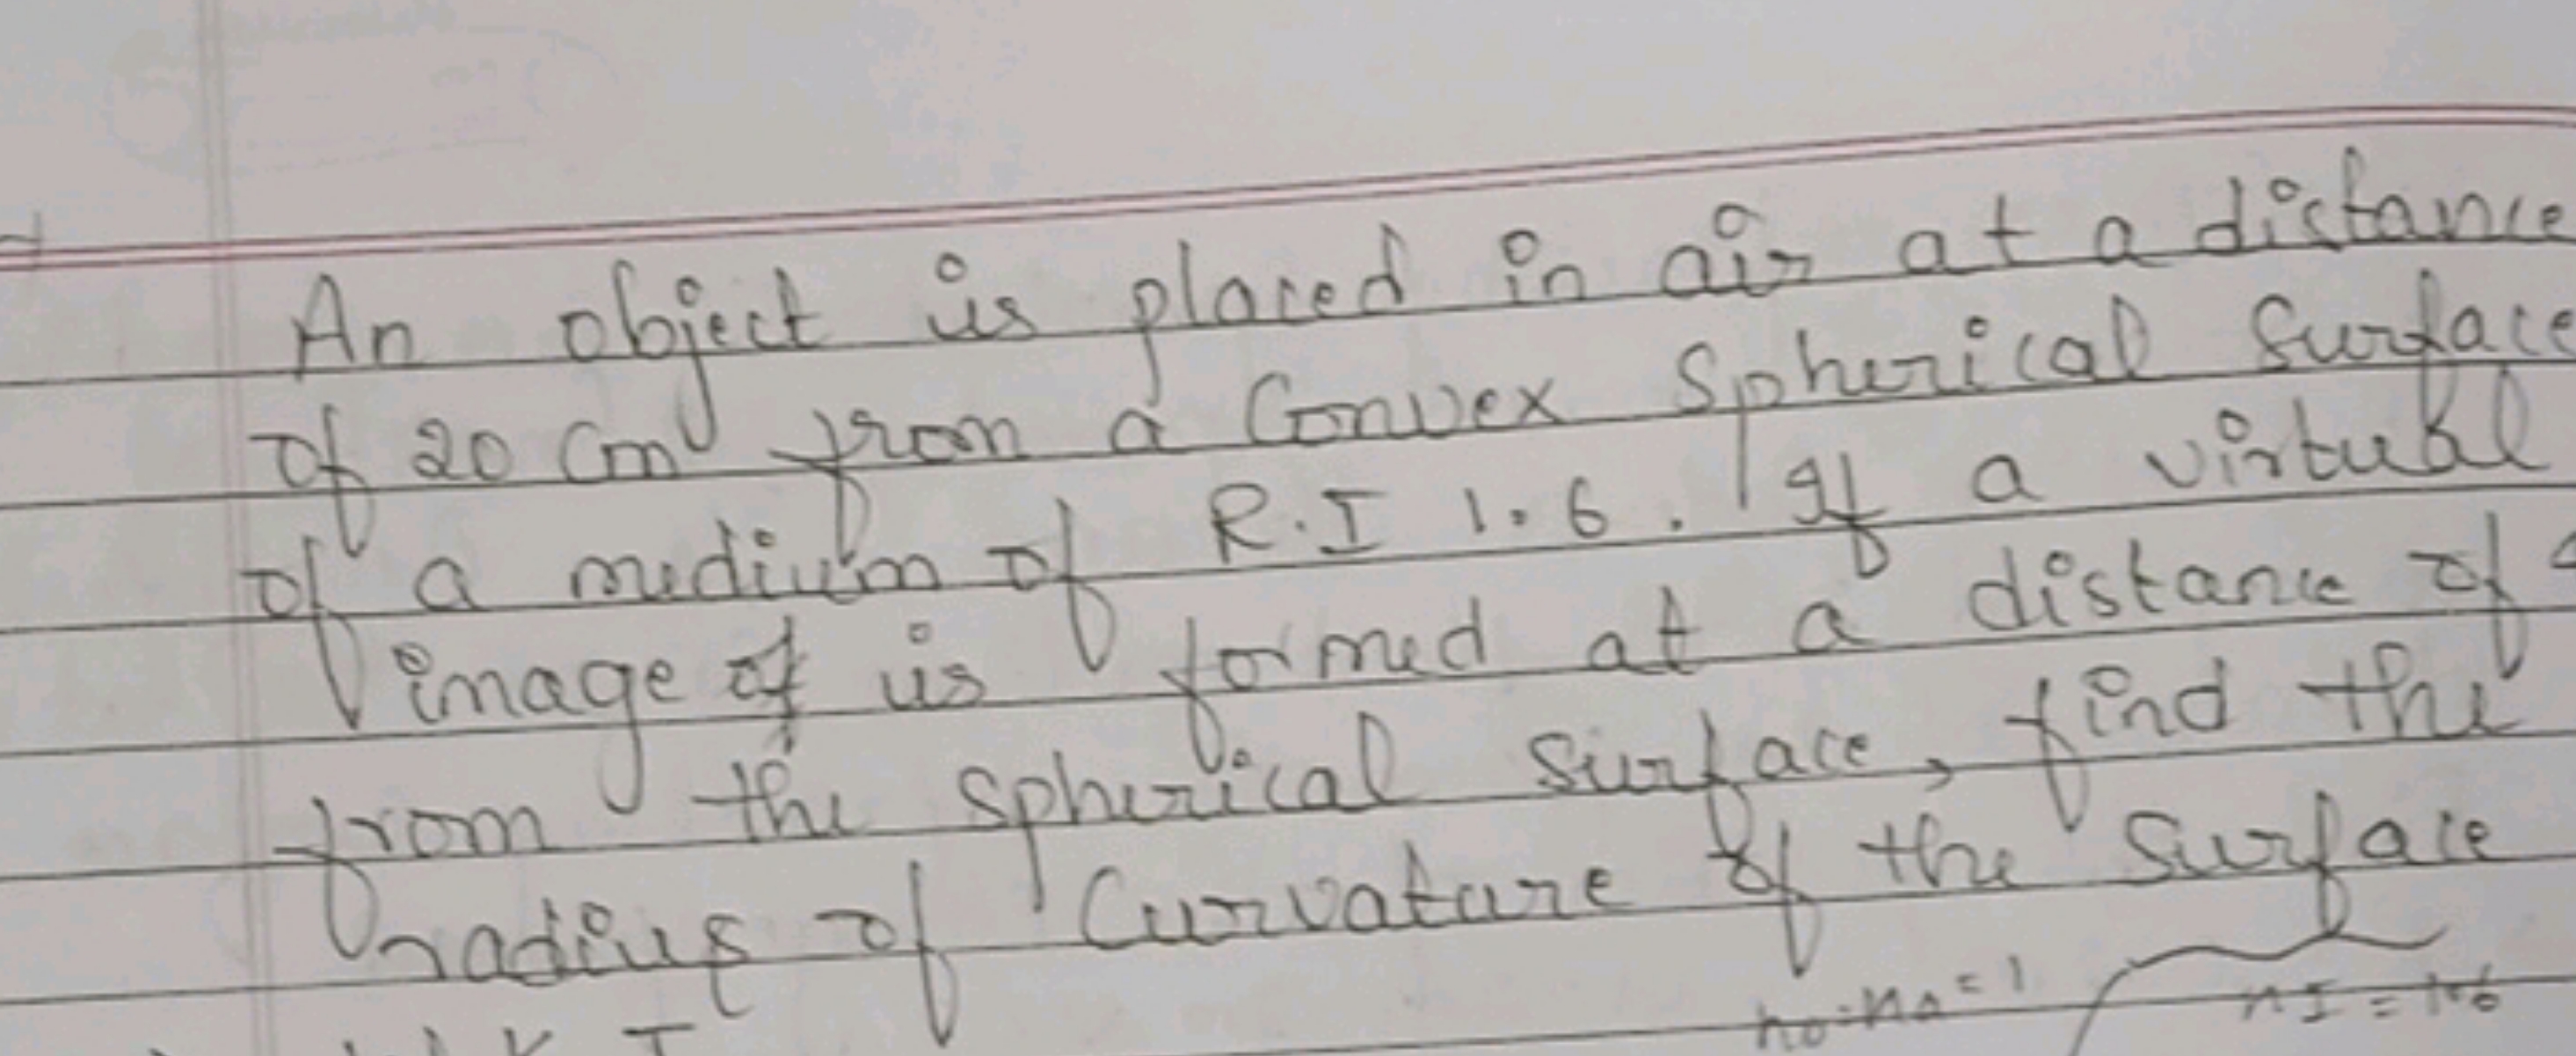 An object is placed in air at a distance
of 20 cm from a Convex Spherical Surface
of a medium of R.I 1.6. If a virtual
image of is formed at a distance of
from the spherical surface, find the
radius of Curvature of the Surface
no=na=1
nI=1.6